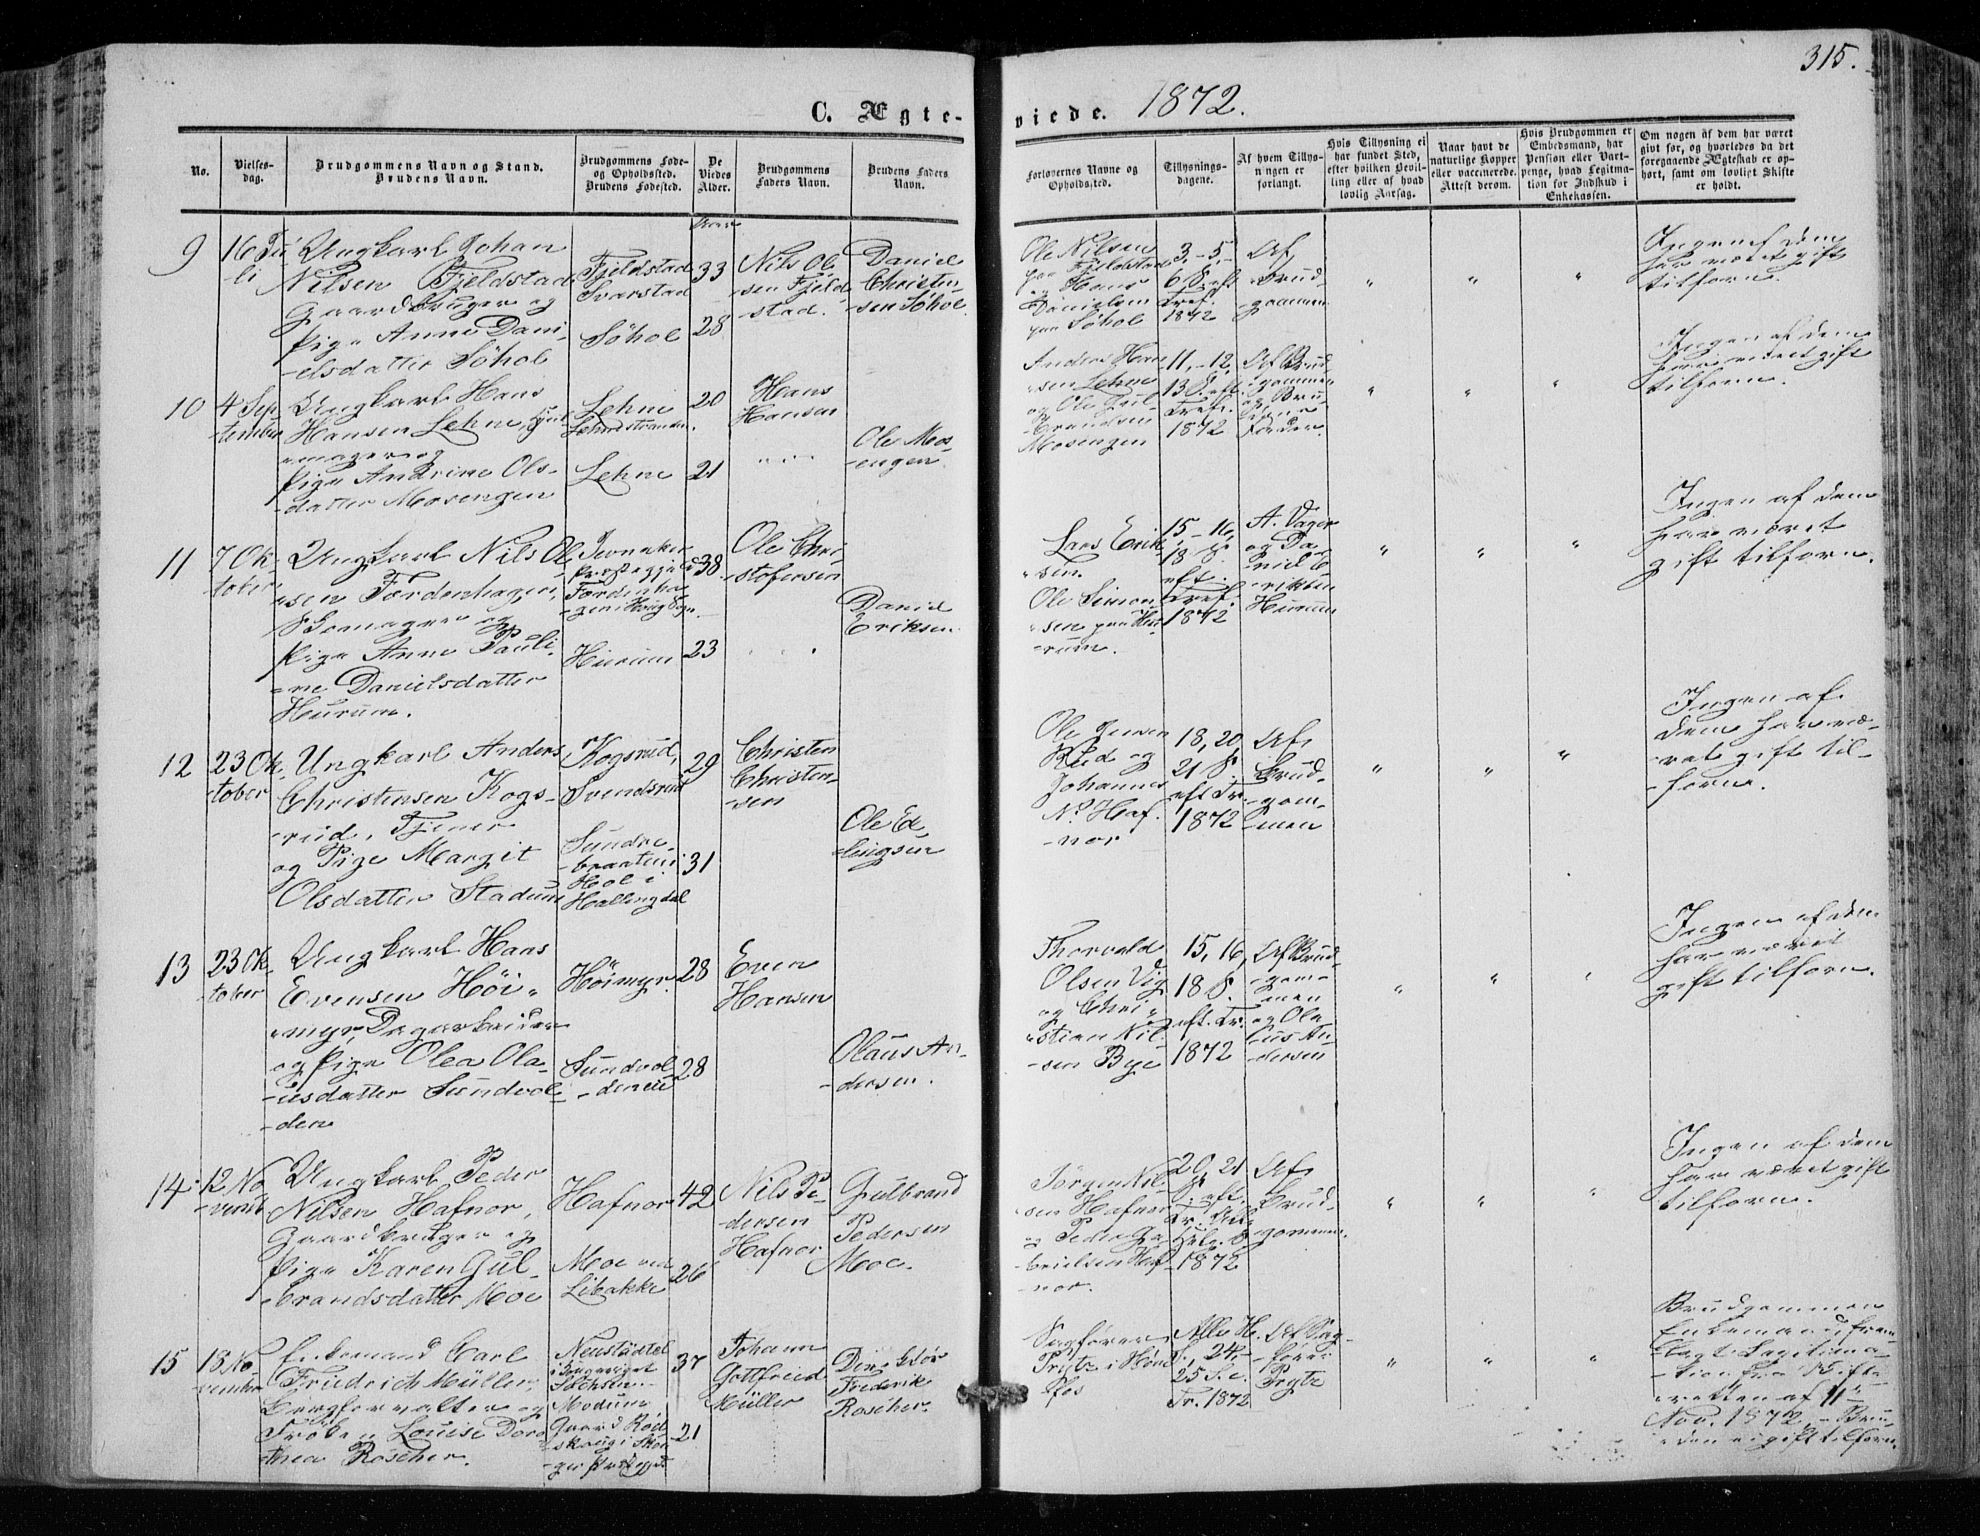 315.
C. Ægte-
viede. 1872.
No.
Vielses-
dag.
Brudgommens Navn og Stand.
Brudens Navn.
Brudgommens Føde-
og Opholdssted.
Brudens Fødested.
De
Viedes
Alder.
Brudgommens
Faders Navn.
Brudens Faders
Navn.
Forlovernes Navne og
Opholdssted.
Tillysnings-
dagene.
Af hvem Tillys-
ningen er
forlangt.
Hvis Tillysning ei
har fundet Sted,
efter hvilken Bevil-
ling eller af hvad
lovlig Aarsag.
Naar havt de
naturlige Kopper
eller vaccinerede.
Attest derom.
Hvis Brudgommen er
Embedsmand, har
Pension eller Vart-
penge, hvad Legitima-
tion for Indskud i
Enkekassen.
Om nogen af dem har været
givt før, og hvorledes da det
foregaaende Ægteskab er op-
hørt, samt om lovligt Skifte
er holdt.
9
16 Ju-
li
Ungkarl Johan
Nilsen Fjeldstad
Gaardbruger og
Pige Anne Dani-
elsdatter Søhol
Fjeldstad
Svarstad
Søhol
33
28
Nils Ol-
sen Fjeld-
stad.
Daniel
Christen-
sen Søhol
Ole Nilsen
paa Fjeldstad
og Hans
Danielsen
paa Søhol
3, - 5, -
6 S. eft
Tref.
1872
Af
Brud-
gommen
" " "
Ingen af dem
har været gift
tilforn.
10
4 Sep-
tember
Ungkarl Hans
Hansen Lehne, Hjul-
mager og
Pige Andrine Ols-
datter Mosengen
Lehne
Lehnestranden.
Lehne
20
21
Hans
Hansen
" " "
Ole Mos-
engen.
Anders Han-
sen Lehne
og Ole Gul-
brandsen
Mosengen
11, - 12,
13 S. eft.
Tref.
1872
Af Brud-
gommen
og Bru-
dens
Fader.
" " "
Ingen af dem
har været gift
tilforn.
11
7 Ok-
tober
Ungkarl Nils Ol-
sen Færdenhagen,
Skomager og
Pige Anne Pauli-
ne Danielsdatter
Hurum.
Jevnaker
Præstegjeld
Færdenha-
gen i Haug Sogn
Hurum
38
23
Ole Chri-
stofersen
" " "
Daniel
Eriksen
Lars Erik-
sen.
Ole Simon-
sen paa Hu-
rum.
15 - 16,
18 S
eft.
Tref.
1872
A. Vager
og Da-
niel E-
riksen
Hurum
" " "
Ingen af dem
har været
gift tilforn.
12
23 Ok-
tober
Ungkarl Anders
Christensen Kogs-
rud, Tjener
og Pige Margit
Olsdatter Stadum
Kogsrud,
Svendsrud
Sundre-
braaten i
Hol i
Hallingdal
29
31
Christen
Christen-
sen
Ole Ed-
lingsen
Ole Jensen
Rud og
Johannes
N. Haf-
nor
18, 20
21 S.
eft Tr.
1872
Af
Brud-
gom-
men
" " "
Ingen af
dem har væ-
ret gift til-
forn.
13
23 Ok-
tober
Ungkarl Hans
Evensen Høi-
myr, Dagarbeider
og Pige Olea Ola-
usdatter Sundvol-
den
Høimyr.
Sundvol-
denеie
28
28
Even
Hansen
Olaus An-
dersen.
Thorvald
Olsen Vig
og Chri-
stian Nil-
sen Bye
15, 16,
18 S.
eft. Tr.
1872
Af Brud-
gom-
men
og Ola-
us An-
dersen
" " "
Ingen af dem
har været
gift tilforn.
14
12 No-
vemb
Ungkarl Peder
Nilsen Hafnor,
Gaardbruger og
Pige Karen Gul-
brandsdatter Moe
Hafnor
Moe ved
Libakke
42
26
Nils Pe-
dersen
Hafnor
Gulbrand
Pedersen
Moe.
Jørgen Nil-
sen Hafnor
og Peder Ga-
brielsen Haf-
nor.
20, 21
S. eft.
Tr. Alle
Helg. S
1872
Af
Brud-
gommen.
" " "
Ingen af dem
har været gift
tilforn.
15
18 No-
vember
Enkemand Carl
Friedrich Müller,
Bergforvalter og
Frøken Louise Doro-
thea Roscher.
Neustädtel
i Kongeriget
Sachsen
Modum
Gaard Rød-
skoug i Skou-
ger Præstegjd.
37
21
Johann
Gottfried
Müller
Direktør
Frederik
Roscher.
Sagfører
Prytz i Høne-
fos
Alle H.
S., 24,
25 S. e.
Tr. 1872
Af Sag-
fører
Prytz
" " "
Brudgommen
Enkemand, frem-
lagt Legitima-
tion fra Skifte-
retten af 11te
Nov. 1872, - Bru-
den ei gift tilforn.